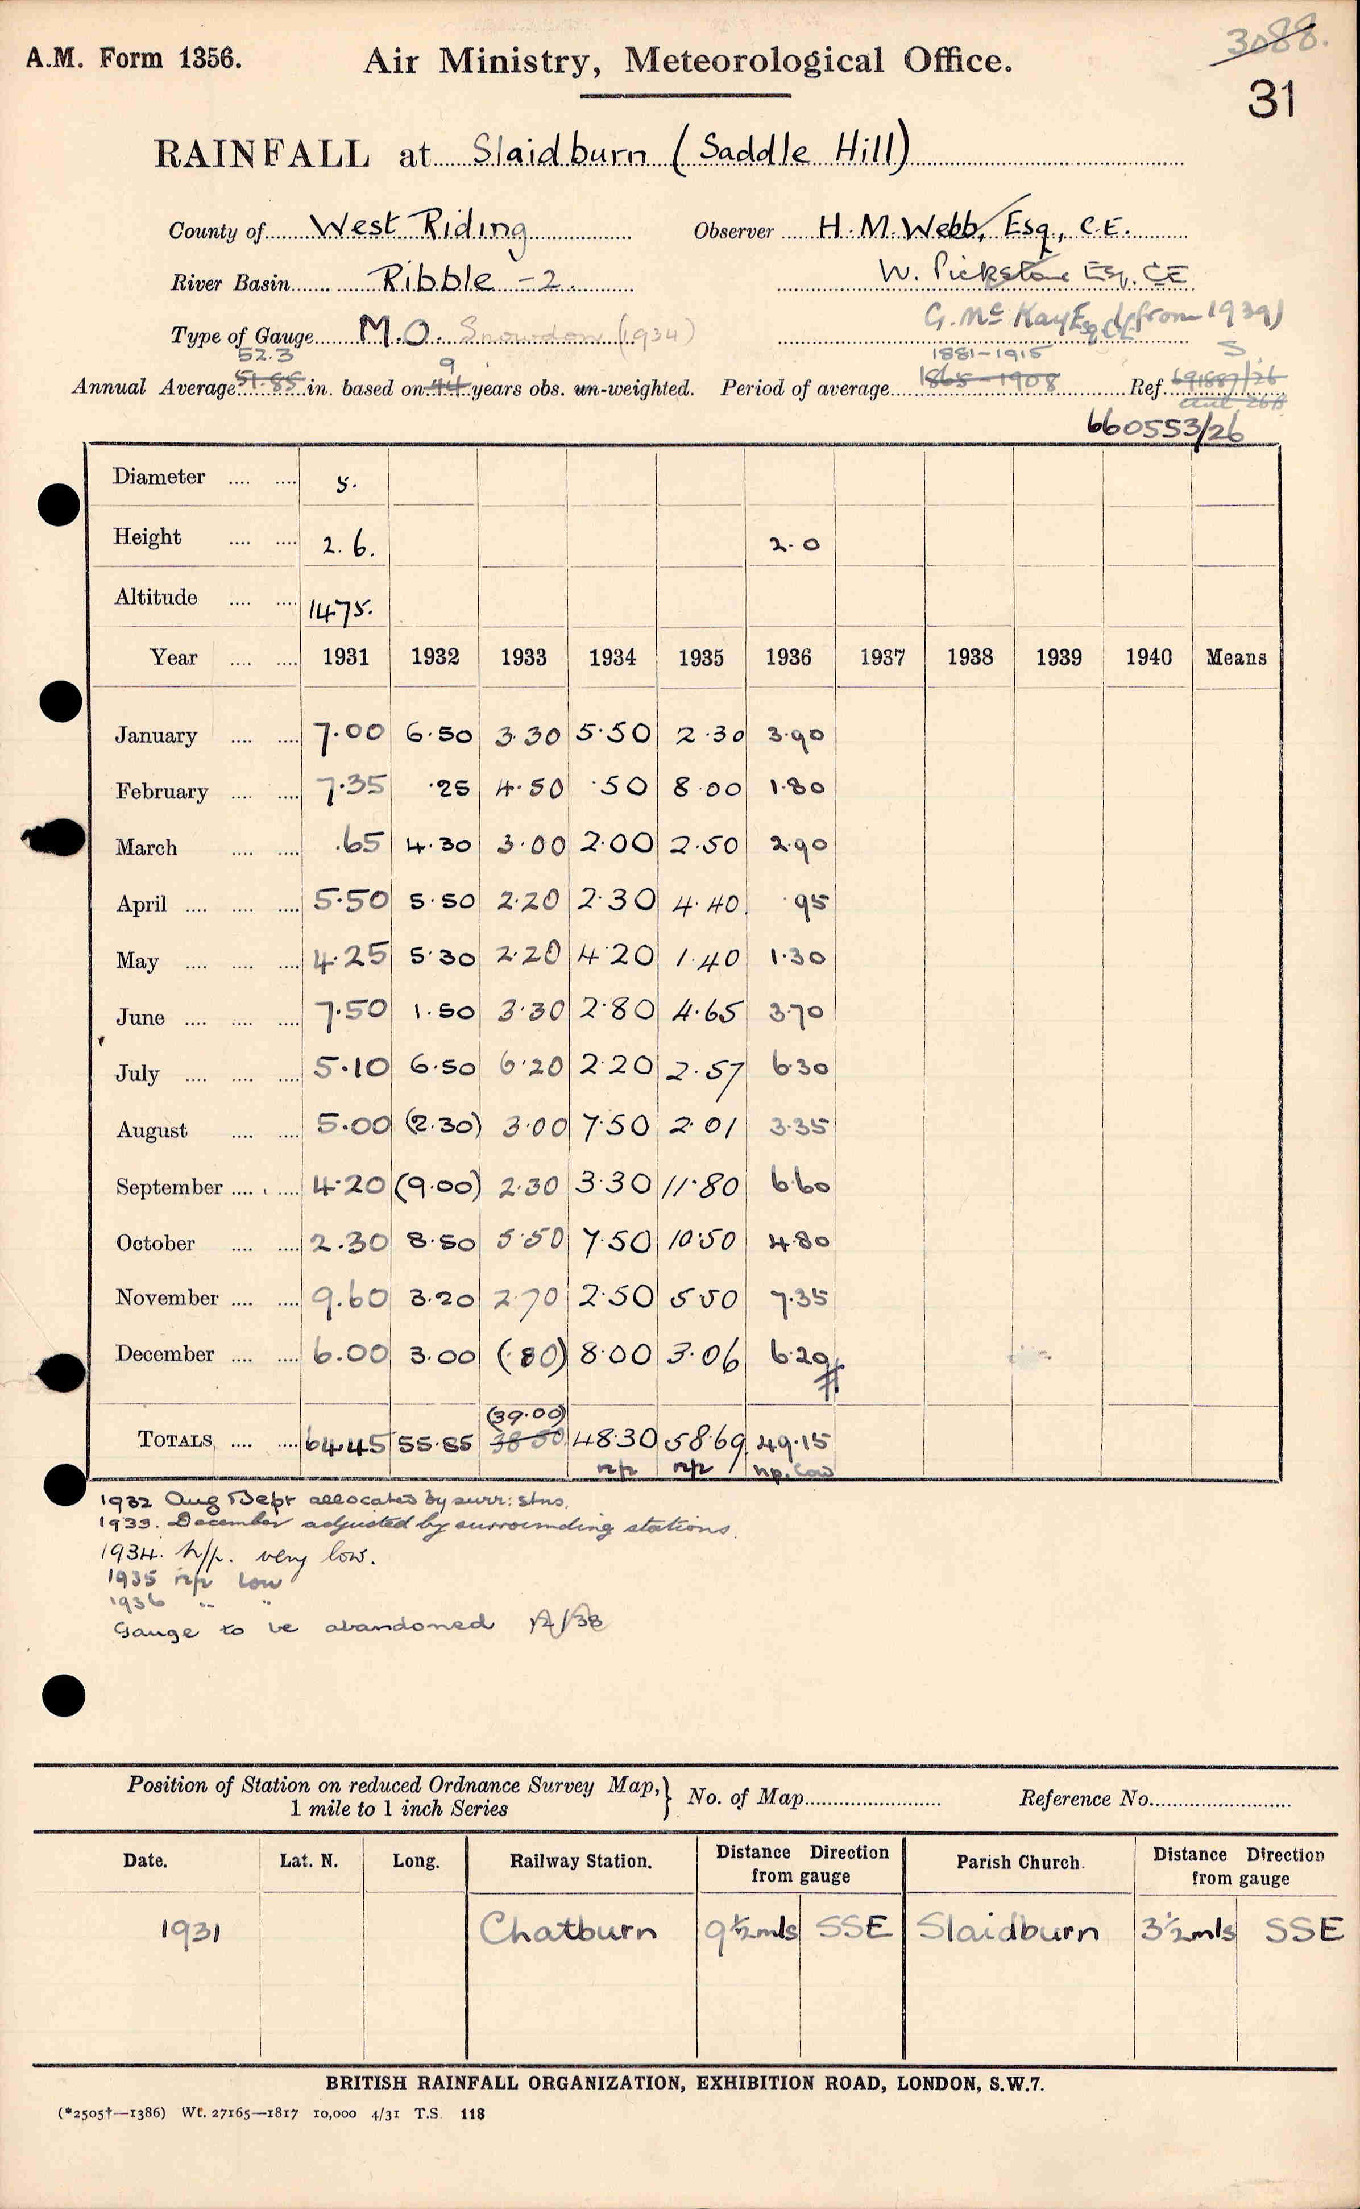 3088.
A.M. Form 1356. Air Ministry, Meteorological Office.
31
RAINFALL at Slaidburn (Saddle Hill)
County of West Riding Observer H. M. Webb, Esq., C.E.
River Basin Ribble - 2. W. Pickstone Esq. CE
Type of Gauge M.O. Snowdon (1934) G. Mc Kay Esq CE (from 1939)
52.3 9 1881-1915 S.
Annual Average 51.85 in. based on 44 years obs. un-weighted. Period of average 1865-1908 Ref.
660553/26
Diameter .... .... 5.
Height .... .... 2.6. 2.0
Altitude .... .... 1475.
Year .... .... 1931 1932 1933 1934 1935 1936 1937 1938 1939 1940 Means
January .... .... 7.00 6.50 3.30 5.50 2.30 3.90
February .... .... 7.35 .25 4.50 .50 8.00 1.80
March .... .... .65 4.30 3.00 2.00 2.50 2.90
April .... .... .... 5.50 5.50 2.20 2.30 4.40 .95
May .... .... .... 4.25 5.30 2.20 4.20 1.40 1.30
June .... .... .... 7.50 1.50 3.30 2.80 4.65 3.70
July .... .... .... 5.10 6.50 6.20 2.20 2.57 6.30
August .... .... 5.00 (2.30) 3.00 7.50 2.01 3.35
September .... .... 4.20 (9.00) 2.30 3.30 11.80 6.60
October .... .... 2.30 8.50 5.50 7.50 10.50 4.80
November .... .... 9.60 3.20 2.70 2.50 5.50 7.35
December .... .... 6.00 3.00 (.80) 8.00 3.06 6.20
(39.00)
TOTALS .... .... 64.45 55.85 38.50 48.30 58.69 49.15
n/p n/p n.p. low
1932 Aug Sept allocated by surr: stns.
1933. December adjusted by surrounding stations.
1934. n/p. very low.
1935 n/p low
1936 " "
Gauge to be abandoned
Position of Station on reduced Ordnance Survey Map, } No. of Map Reference No.
1 mile to 1 inch Series
Date. Lat. N. Long. Railway Station. Distance Direction from gauge Parish Church. Distance Direction from gauge
1931 Chatburn 9½ mls SSE Slaidburn 3½ mls SSE
BRITISH RAINFALL ORGANIZATION, EXHIBITION ROAD, LONDON, S.W.7.
(*2505†—1386) Wt. 27165—1817 10,000 4/31 T.S. 118